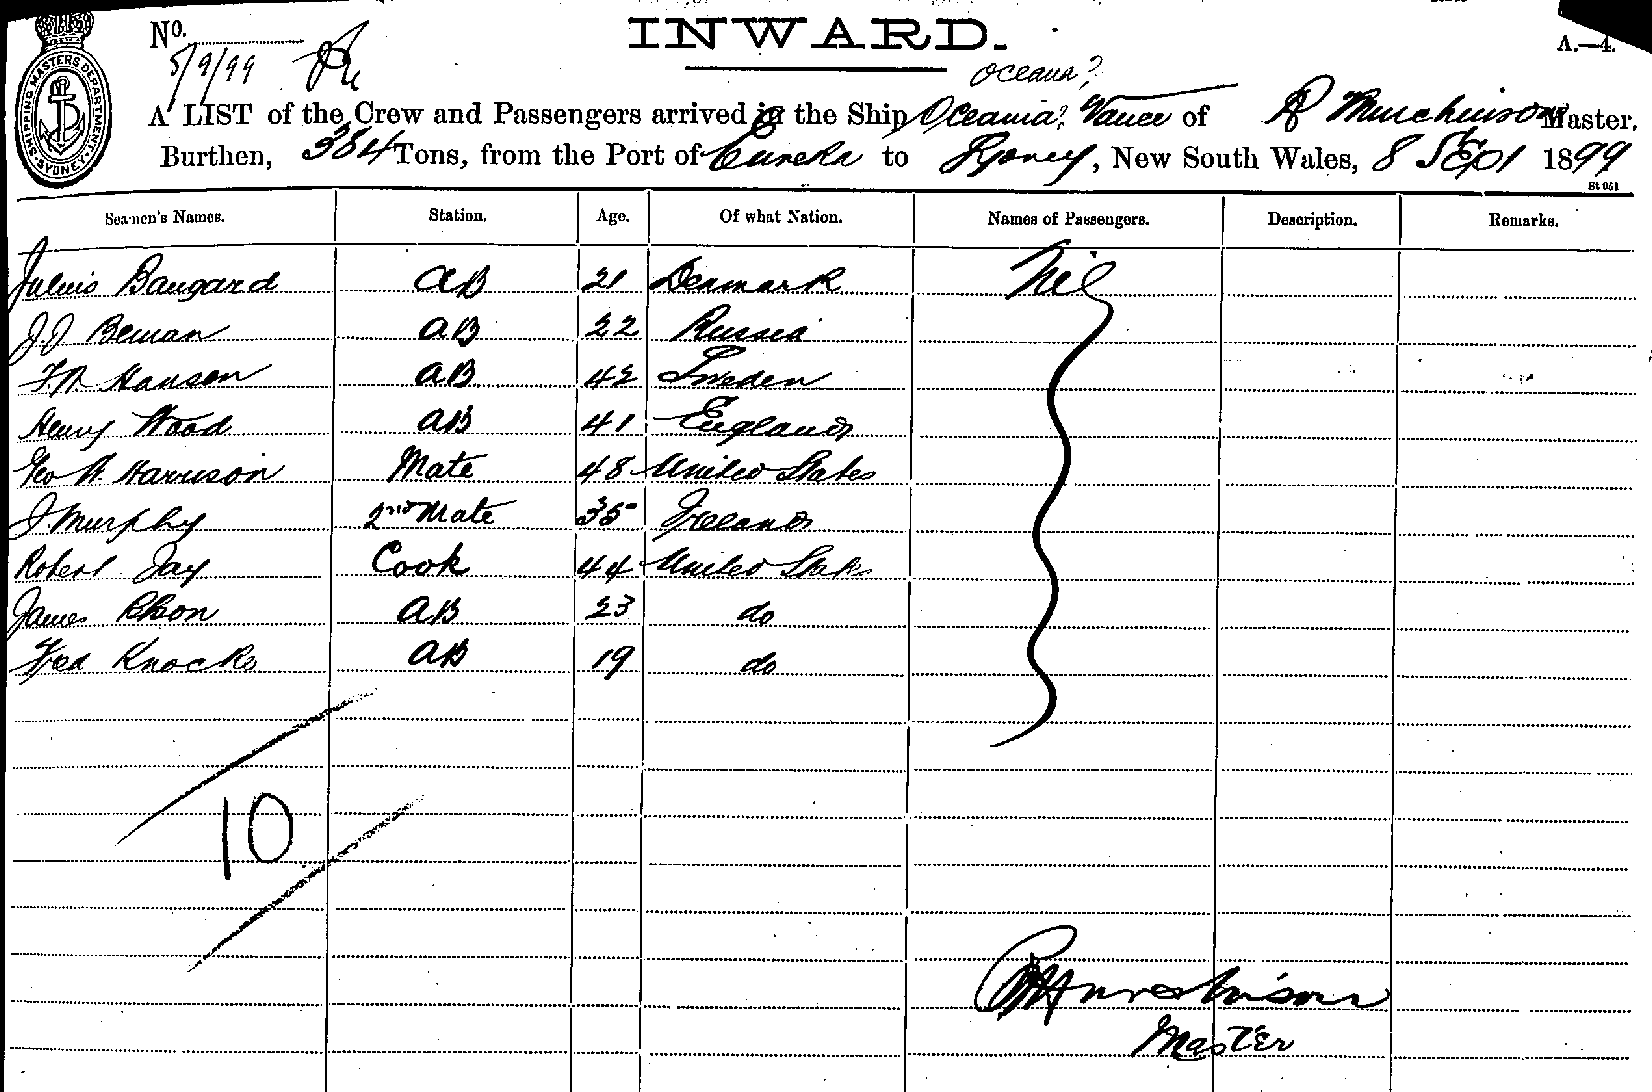 SHIPPING MASTERS DEPARTMENT SYDNEY
INWARD.
No.
A.—4.
5/9/99
Oceana?
A LIST of the Crew and Passengers arrived in the Ship Oceania? Vance of R Murchinson Master,
Burthen, 384 Tons, from the Port of Eureka to Sydney, New South Wales, 8 Sept 1899
St 051
Seamen's Names. Station. Age. Of what Nation. Names of Passengers. Description. Remarks.
Julius Baugard AB 21 Denmark Nil
J.J Beman AB 22 Russia
Hansen AB 42 Sweden
Henry Wood AB 41 England
Geo W. Harrison Mate 48 United States
J Murphy 2nd Mate 35 Ireland
Robert Jay Cook 44 United States
James AB 23 do
Fred Knocke AB 19 do
10
Master